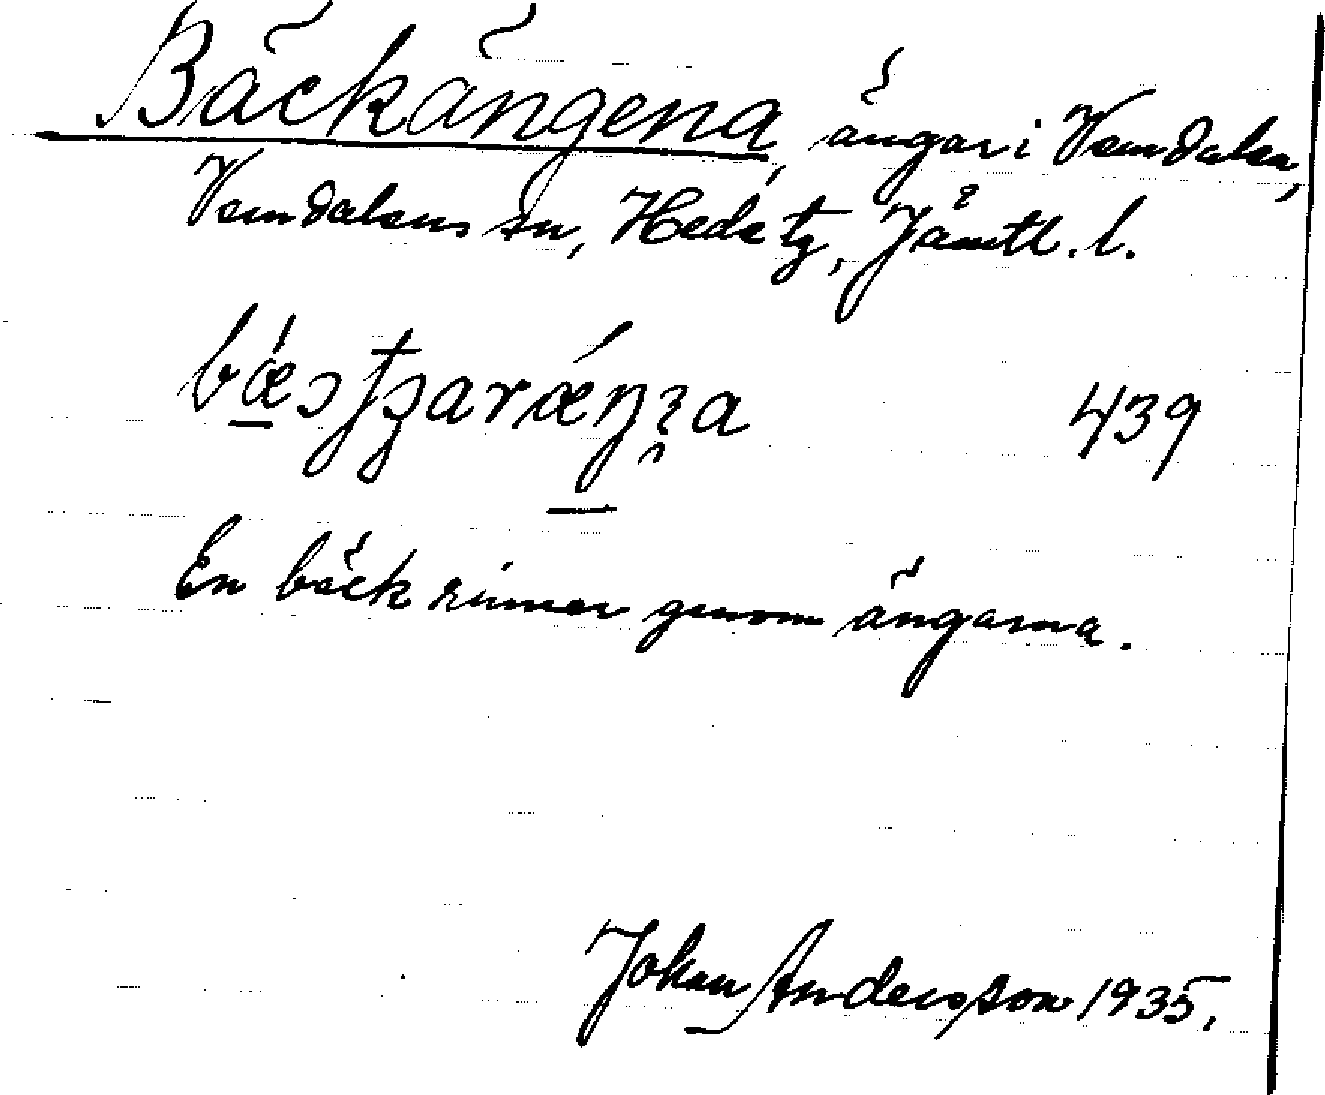 Bäckängena, ängar i Vemdalen,
Vemdalens sn, Heds tg, Jämtl. l.
439
En bäck rinner genom ängarna.
Johan Andersson 1935.